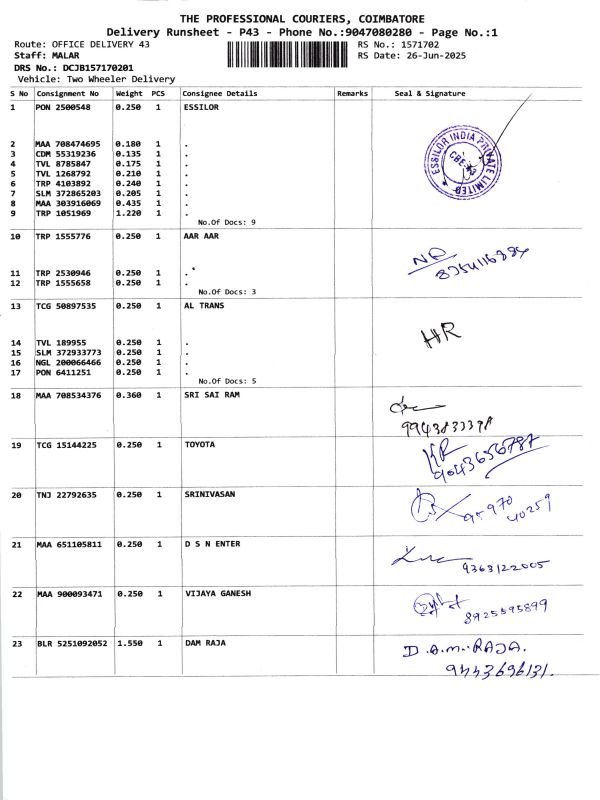 THE PROFESSIONAL COURIERS, COIMBATORE
Delivery Runsheet - P43 - Phone No.:9047080280 - Page No.:1
Route: OFFICE DELIVERY 43
RS No.: 1571702
Staff: MALAR
RS Date: 26-Jun-2025
DRS No.: DCJB157170201
Vehicle: Two Wheeler Delivery
S No Consignment No Weight PCS Consignee Details Remarks Seal & Signature
1 PON 2500548 0.250 1 ESSILOR
ESSILOR INDIA PRIVATE LIMITED
2 MAA 708474695 0.180 1 .
3 CDM 55319236 0.135 1 .
4 TVL 8785847 0.175 1 .
5 TVL 1268792 0.210 1 .
6 TRP 4103892 0.240 1 .
7 SLM 372865203 0.205 1 .
8 MAA 303916069 0.435 1 .
9 TRP 1051969 1.220 1 .
No.Of Docs: 9
10 TRP 1555776 0.250 1 AAR AAR
11 TRP 2530946 0.250 1 .
12 TRP 1555658 0.250 1 .
No.Of Docs: 3
13 TCG 50897535 0.250 1 AL TRANS
HR
14 TVL 189955 0.250 1 .
15 SLM 372933773 0.250 1 .
16 NGL 200066466 0.250 1 .
17 PON 6411251 0.250 1 .
No.Of Docs: 5
18 MAA 708534376 0.360 1 SRI SAI RAM
19 TCG 15144225 0.250 1 TOYOTA
9043656787
20 TNJ 22792635 0.250 1 SRINIVASAN
95970
40259
21 MAA 651105811 0.250 1 D S N ENTER
9363122005
22 MAA 900093471 0.250 1 VIJAYA GANESH
8925595899
23 BLR 5251092052 1.550 1 DAM RAJA
D.a.m.RAJA.
9443696131.